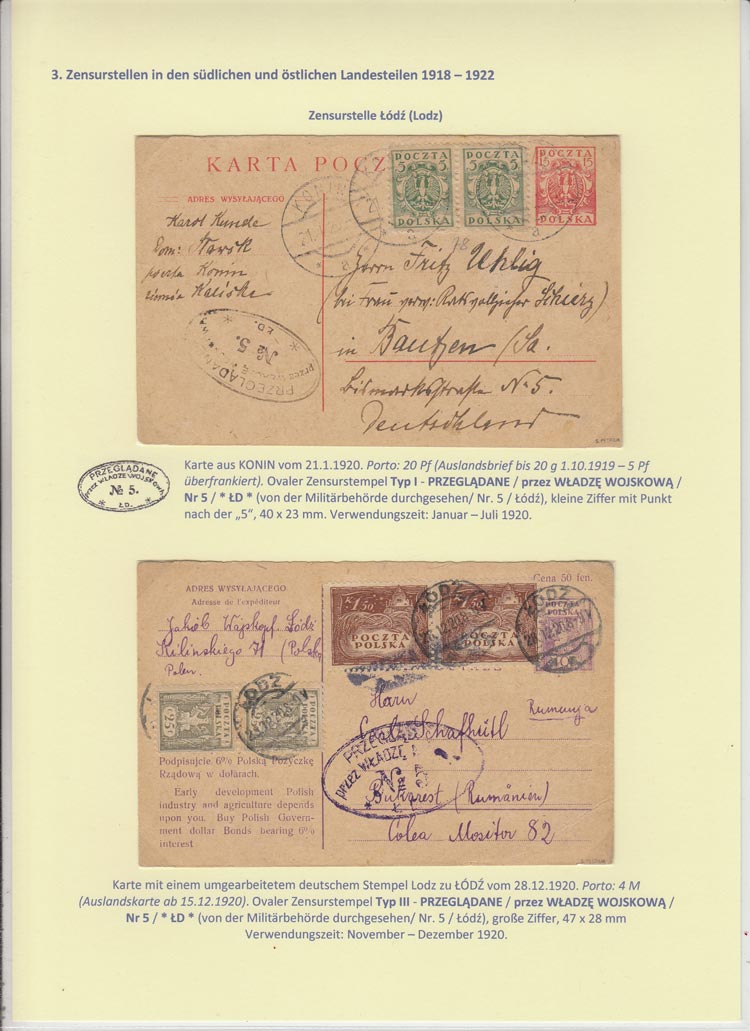 3. Zensurstellen in den südlichen und östlichen Landesteilen 1918 – 1922
Zensurstelle Łódź (Lodz)
KARTA POCZ
ADRES WYSYŁAJĄCEGO
Karol Kunde
Dom: Sławsk
poczta Konin
ziemia Kaliska
KONIN
POCZTA
5 5
POLSKA
POCZTA
5 5
POLSKA
POCZTA
15 15
POLSKA
78
Herrn Fritz Uhlig
(bei Frau verw: Ratsvollzieher Schierz)
in Bautzen /Sa.
Bismarkstraße № 5.
Deutschland
PRZEGLĄDAN
przez WŁADZĘ
№ 5.
* ŁD. *
PRZEGLĄDANE
przez WŁADZE WOJSKOWĄ
№ 5.
* ŁD. *
Karte aus KONIN vom 21.1.1920. Porto: 20 Pf (Auslandsbrief bis 20 g 1.10.1919 – 5 Pf
überfrankiert). Ovaler Zensurstempel Typ I - PRZEGLĄDANE / przez WŁADZĘ WOJSKOWĄ /
Nr 5 / * ŁD * (von der Militärbehörde durchgesehen/ Nr. 5 / Łódź), kleine Ziffer mit Punkt
nach der „5“, 40 x 23 mm. Verwendungszeit: Januar – Juli 1920.
ADRES WYSYŁAJĄCEGO
Adresse de l'expéditeur
Jakób Wajskopf. Łódź
Kilinskiego 71 (Polska
Polen.
Cena 50 fen.
1.50
POCZTA
POLSKA
POCZTA
POLSKA
POCZTA
POLSKA
ŁÓDŹ
ŁÓDŹ
ŁÓDŹ
25
Podpisujcie 6% Polską Pożyczkę
Rządową w dolarach.
Early development Polish
industry and agriculture depends
upon you. Buy Polish Govern-
ment dollar Bonds bearing 6%
interest
Herrn
Rumunja
Carl Schafhütl
Bukarest (Rumänien)
Colea Mositor 82
PRZEGLĄD
przez WŁADZĘ
Karte mit einem umgearbeitetem deutschem Stempel Lodz zu ŁÓDŹ vom 28.12.1920. Porto: 4 M
(Auslandskarte ab 15.12.1920). Ovaler Zensurstempel Typ III - PRZEGLĄDANE / przez WŁADZĘ WOJSKOWĄ /
Nr 5 / * ŁD * (von der Militärbehörde durchgesehen/ Nr. 5 / Łódź), große Ziffer, 47 x 28 mm
Verwendungszeit: November – Dezember 1920.